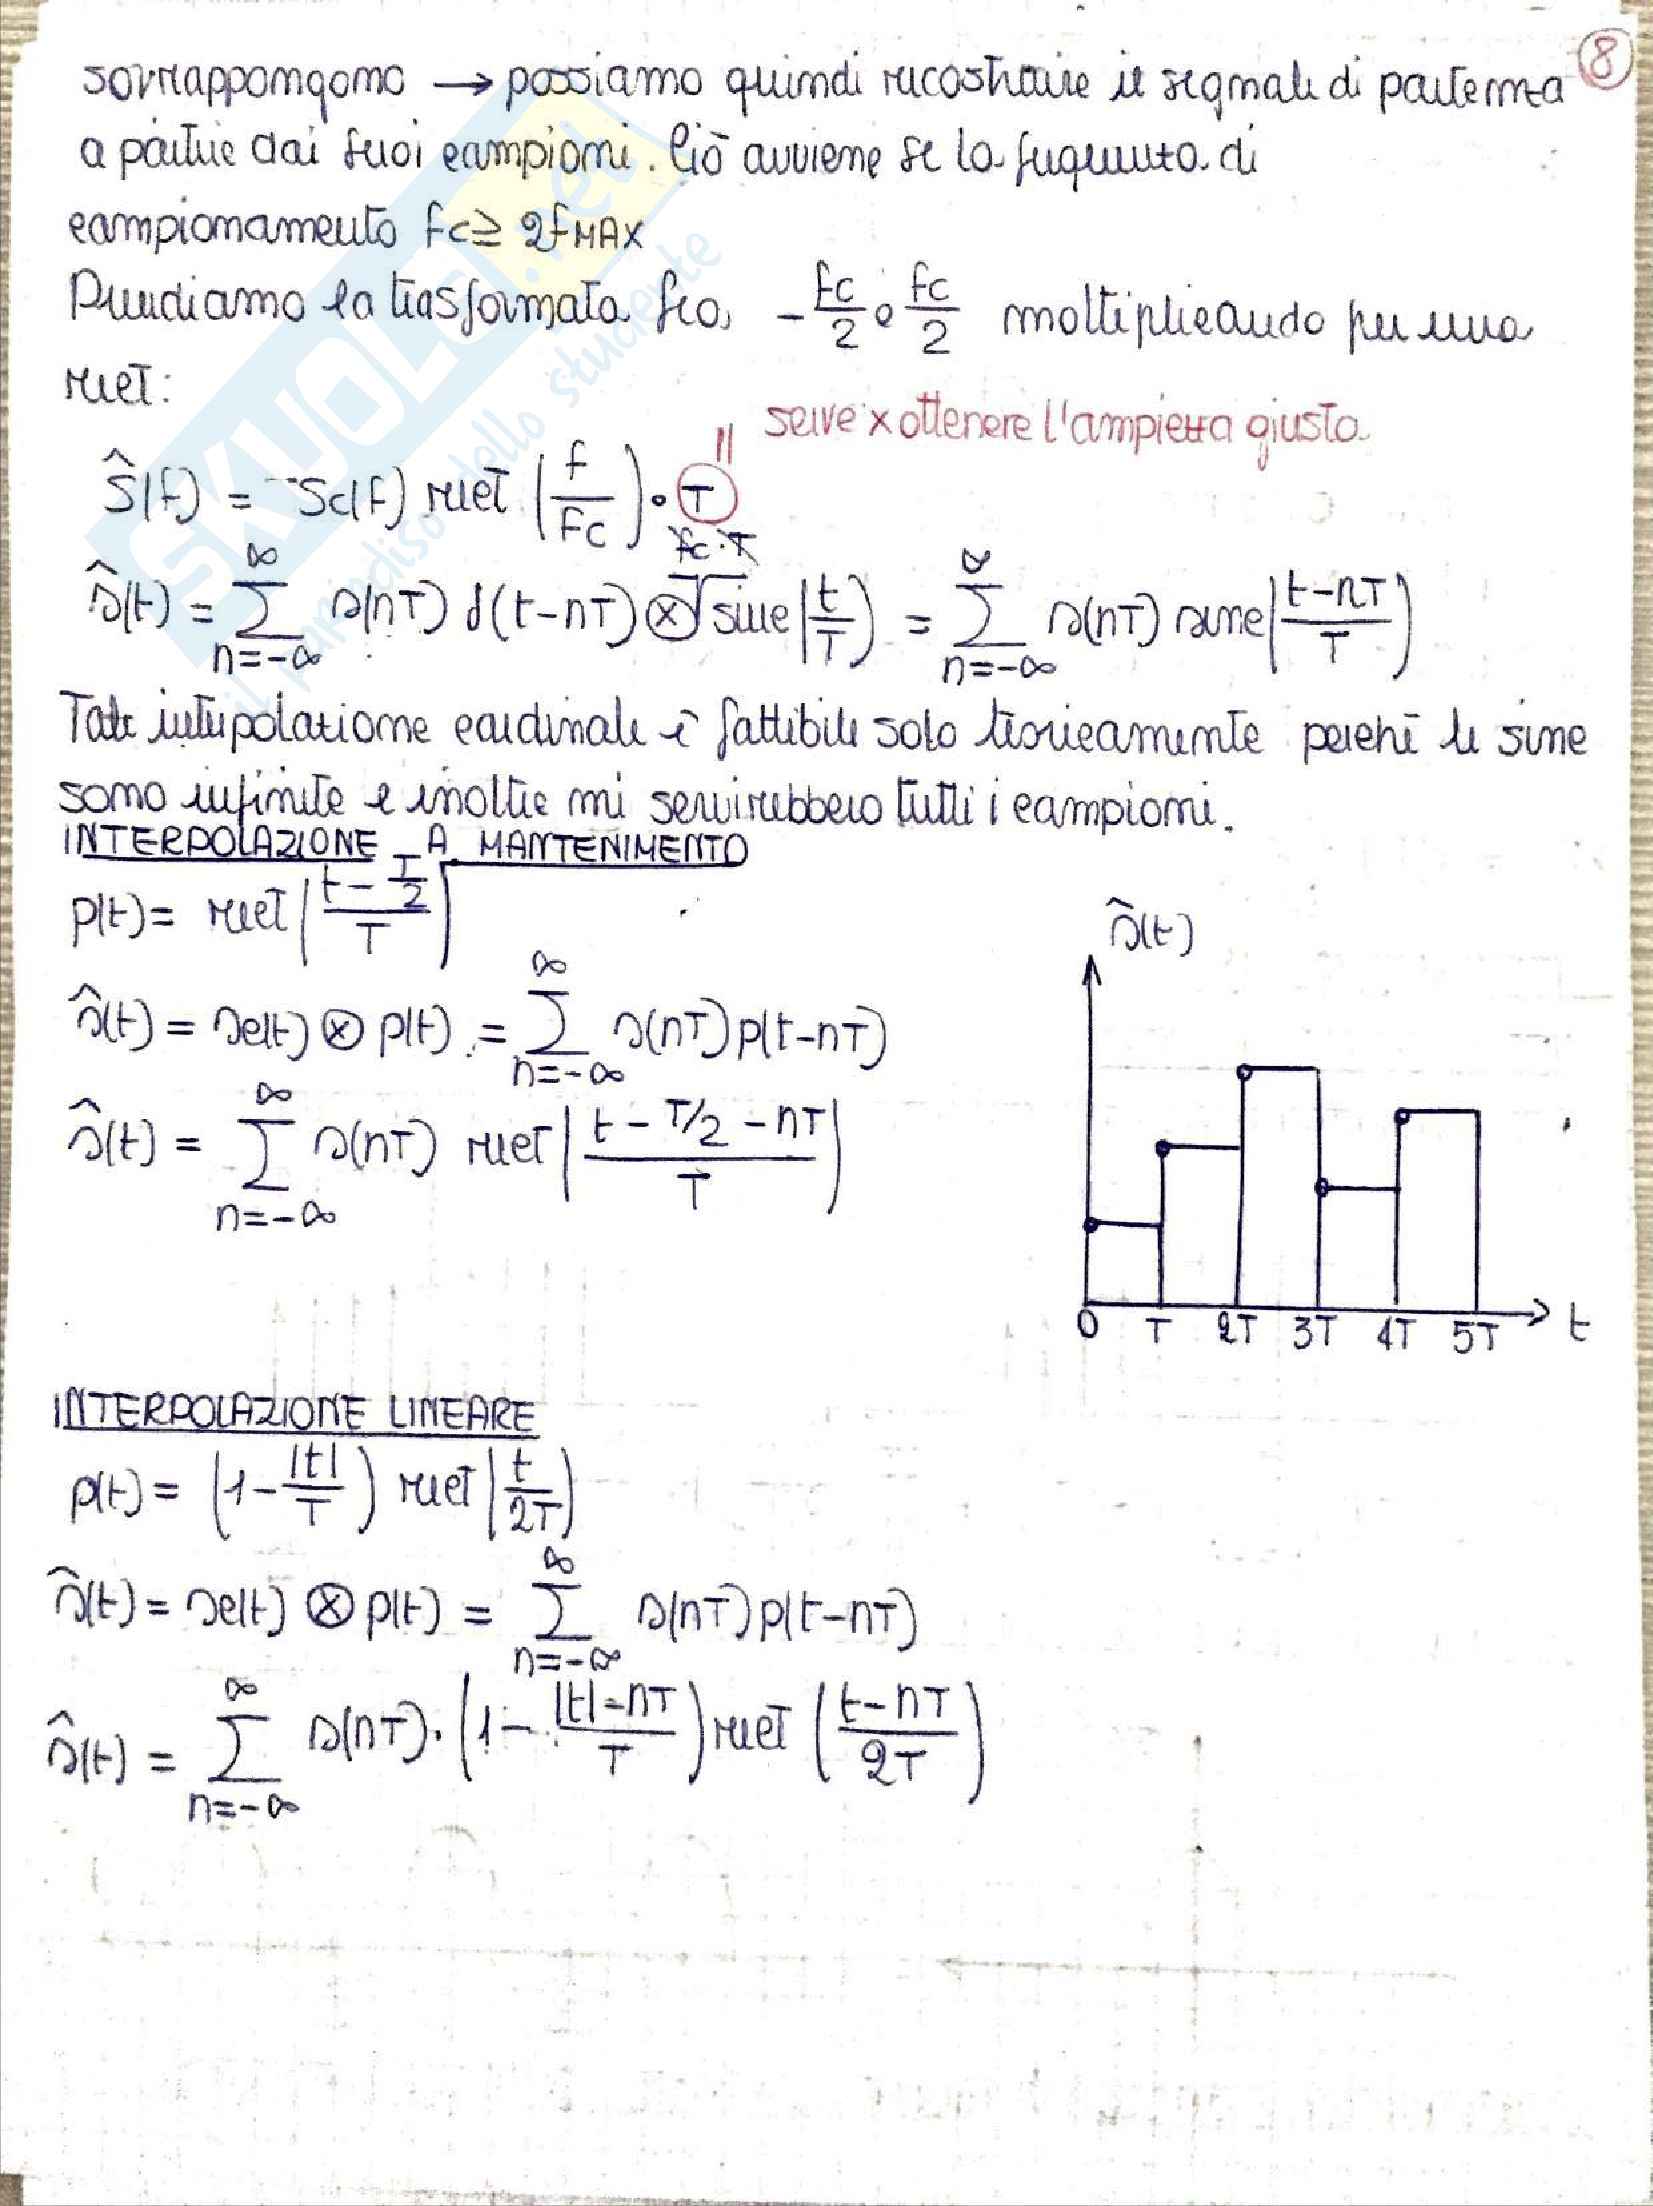 8
sovrappongono → possiamo quindi ricostruire il segnale di partenza
a partire dai suoi campioni. Ciò avviene se la frequenza di
campionamento fc ≥ 2fMAX
Prendiamo la trasformata fra -fc/2 e fc/2 moltiplicando per una
rect:
serve x ottenere l'ampiezza giusta
Ŝ(f) = Sc(f) rect (f/fc) · T
fc·T
ŝ(t) = ∑_{n=-∞}^{∞} s(nT) δ(t-nT) ⊗ sinc(t/T) = ∑_{n=-∞}^{∞} s(nT) sinc((t-nT)/T)
Tale interpolazione cardinale è fattibile solo teoricamente perché le sinc
sono infinite e inoltre mi servirebbero tutti i campioni.
INTERPOLAZIONE A MANTENIMENTO
p(t) = rect((t - T/2)/T)
ŝ(t) = sc(t) ⊗ p(t) = ∑_{n=-∞}^{∞} s(nT) p(t-nT)
ŝ(t) = ∑_{n=-∞}^{∞} s(nT) rect((t - T/2 - nT)/T)
ŝ(t)
0 T 2T 3T 4T 5T t
INTERPOLAZIONE LINEARE
p(t) = (1 - |t|/T) rect(t/2T)
ŝ(t) = sc(t) ⊗ p(t) = ∑_{n=-∞}^{∞} s(nT) p(t-nT)
ŝ(t) = ∑_{n=-∞}^{∞} s(nT) · (1 - (|t|-nT)/T) rect((t-nT)/2T)
SKUOLA.net
il paradiso dello studente